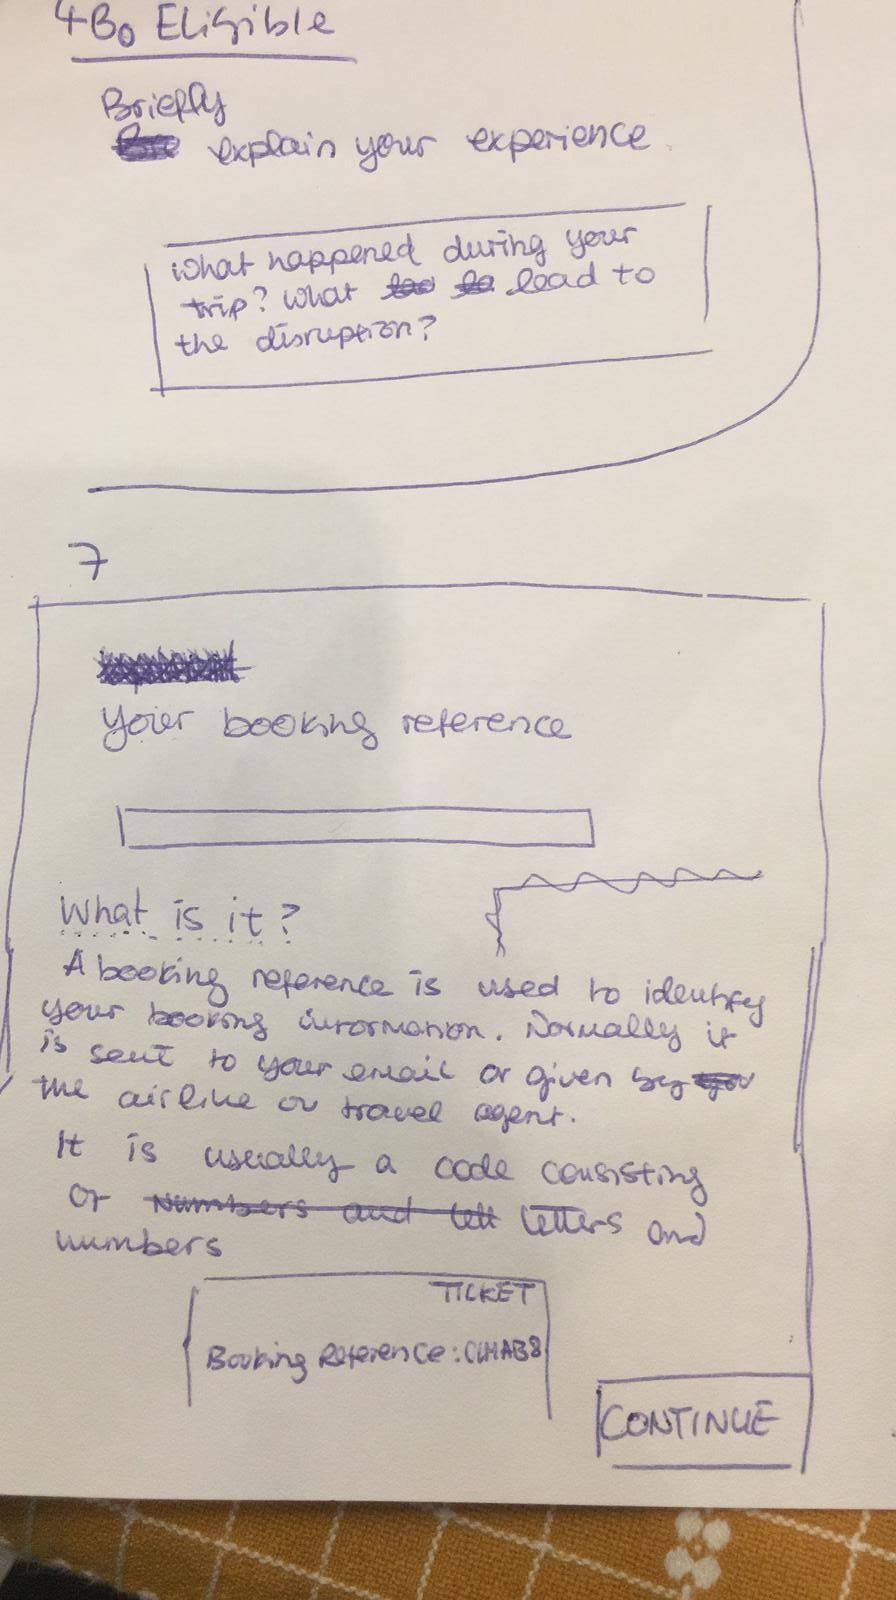 4B0 Eligible
Briefly
explain your experience.
What happened during your
trip? What lead to
the disruption?
7
Your booking reference
What is it?
A booking reference is used to identify
your booking information. Normally it
is sent to your email or given by
the airline or travel agent.
It is usually a code consisting
of numbers and lett letters and
numbers
TICKET
Booking Reference:
CONTINUE